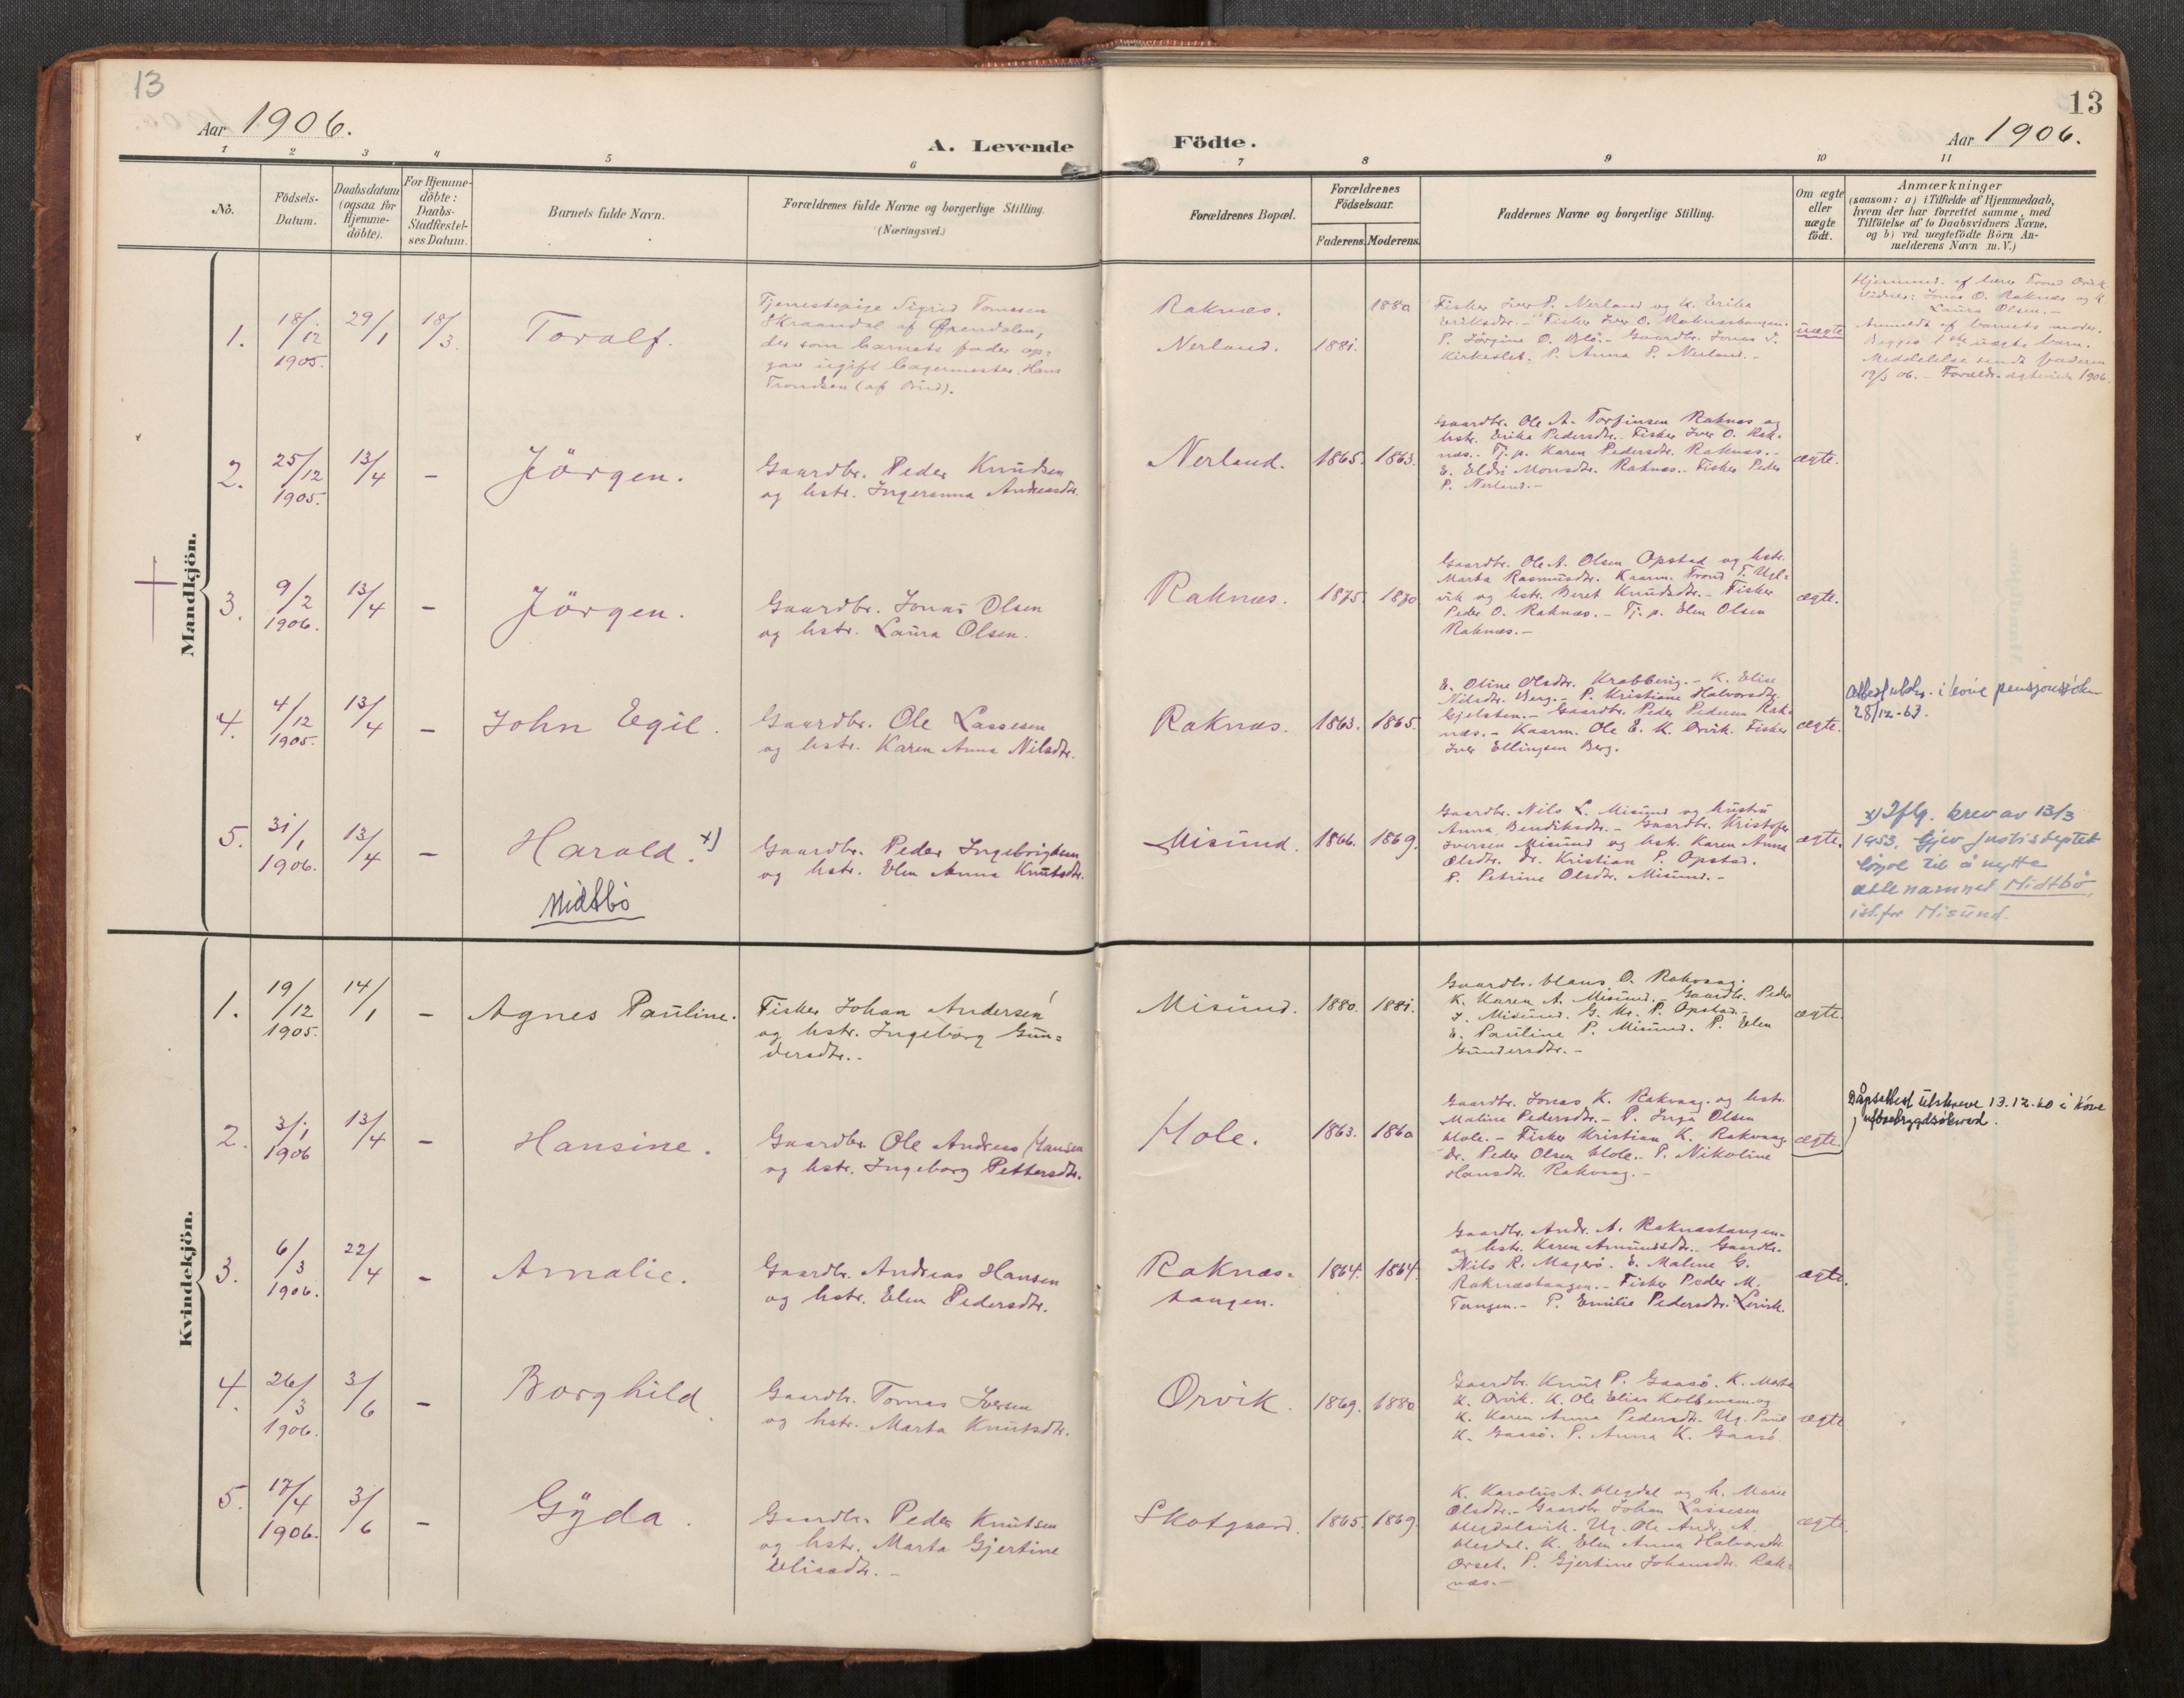 13
Aar 1906.
A. Levende
1 2 3 4 5 6
No.
Födsels-
Datum.
Daabsdatum
(ogsaa for
Hjemme-
döbte).
For Hjemme-
döbte:
Daabs-
Stadfæstel-
ses Datum.
Barnets fulde Navn.
Forældrenes fulde Navne og borgerlige Stilling.
(Næringsvei.)
Mandkjön.
1. 18/12 1905. 29/1 18/3 Toralf.
Tjenestepige Sigrid Tomssen
Skraandal af Ørendalen,
der som barnets fader op=
gav ugift bagermester Hans
Trondsen (af Orvid).
2. 25/12 1905. 13/4 – Jörgen.
Gaardbr. Peder Knudsen
og hstr. Ingeranna Andreasdtr.
3. 9/2 1906. 13/4 – Jörgen.
Gaardbr. Jonas Olsen
og hstr. Laura Olsen.
4. 4/12 1905. 13/4 – John Egil.
Gaardbr. Ole Lassesen
og hstr. Karen Anna Nilsdtr.
5. 31/1 1906. 13/4 – Harald. x)
Midtbö
Gaardbr. Peder Ingebrigtsen
og hstr. Elen Anna Knutsdtr.
Kvindekjön.
1. 19/12 1905. 14/1 – Agnes Pauline.
Fisker Johan Andersen
og hstr. Ingeborg Gun=
dersdtr.–
2. 3/1 1906 13/4 – Hansine.
Gaardbr. Ole Andreas Hansen
og hstr. Ingeborg Pettersdtr.
3. 6/3 1906. 22/4 – Amalie.
Gaardbr. Andreas Hansen
og hstr. Elen Pedersdtr.
4. 26/3 1906. 3/6 – Borghild.
Gaardbr. Tomas Iversen
og hstr. Marta Knutsdtr.
5. 17/4 1906. 3/6 – Gÿda.
Gaardbr. Peder Knutsen
og hstr. Marta Gjertine
Elisadtr.–
13
Aar 1906.
Födte.
7 8 9 10 11
Forældrenes Bopæl.
Forældrenes
Födselsaar.
Faderens. Moderens.
Faddernes Navne og borgerlige Stilling.
Om ægte
eller
uægte
födt.
Anmærkninger
(saasom: a) i Tilfælde af Hjemmedaab,
hvem der har forrettet samme, med
Tilföielse af to Daabsvidners Navne,
og b) ved uægtefödte Börn An-
melderens Navn m. V.)
Raknæs. 1880
Nerland. 1881.
Fisker Iver P. Nerland og K. Erika
Eriksdtr.– Fisker Iver O. Raknæstangen.
P. Jörgine O. – Gaardbr. Jonas
P. Anna P. Nerland.–
uægte
Hjemmed. af lærer Trond Orvik
Vidner: Jonas O. Raknæs og
Laura Olsen.–
Anmeldt af barnets moder.
Begges 1ste uægte barn.
Meddelelse sendt faderen
19/3 06.– 1906.
Nerland. 1865. 1863.
Gaardbr. Ole A. Torfinsen Raknæs og
hstr. Erika Pedersdtr.– Fisker Iver O. Rak-
næs.– Tj. p. Karen Pedersdtr. Raknæs.–
E. Eldri Monsdtr. Raknæs.– Fisker Peder
P. Nerland.–
ægte.
Raknæs. 1875. 1870
Gaardbr. Ole A. Olsen Opstad og hstr.
Marta Rasmusdtr. Kaarm. Trond T. Ugl-
vik og hstr. Beret Knudsdtr.– Fisker
Peder O. Raknæs.– Tj. p. Elen Olsen
Raknæs.–
ægte.
Raknæs. 1863. 1865.
E. Oline Olsdtr. Krabberig.– K. Elise
Nilsdtr. Berg.– P. Kristiane Halvorsdtr.
Gjelsten.– Gaardbr. Peder Pedersen Rak-
næs.– Kaarm. Ole E. K. Orvik. Fisker
Iver Ellingsen Berg.
ægte.
28/12-63.
Misund. 1866. 1869.
Gaardbr. Nils L. Misund og hustru
Anna Bendiksdtr.– Gaardbr. Kristofer
Iversen Misund og hstr. Karen Anna
Olsdtr. Dr. Kristian P. Opstad.
P. Petrine Olsdtr. Misund.–
ægte.
x) Iflg. brev av 13/3
1953, gjev Justisdeptet
löyve til å nytte
ættenamnet Midtbö,
istf. for Misund.
Misund. 1880. 1881.
Gaardbr. Hans O. Rakvaag.
K. Karen A. Misund.– Gaardbr. Peder
I. Misund. G. Kr. P. Opstad.–
E. Pauline P. Misund. P. Elen
Gundersdtr.–
ægte.
Hole. 1863. 1860
Gaardbr. Jonas K. Rakvaag. og hstr.
Maline Pedersdtr.– P. Inga Olsen
Hole.– Fisker Kristian K. Rakvaag
Dr. Peder Olsen Hole.– P. Nikoline
Hansdtr. Rakvaag.–
ægte.
Dåpsattest utskreve 13.12.60 i höve
uföretrygdsöknad.
Raknæs=
tangen. 1864. 1864.
Gaardbr. Andr. A. Raknæstangen-
og hstr. Karen Amundsdtr. Gaardbr.
Nils R. Magerö. E. Maline G.
Raknæstangen.– Fisker Peder M.
Tangen.– P. Emilie Pedersdtr. Lervik.
ægte.
Orvik. 1869. 1880
Gaardbr. Knut P. Gaasö. K. Marta
K. Orvik. K. Ole Elias Kolbensen og
K. Karen Anna Pedersdtr. Ug. Paul
K. Gaasö. P. Anna K. Gaasö
ægte
Skotgaard. 1865. 1869.
K. Karolus A. Hegdal og h. Marie
Olsdtr.– Gaardbr. Johan Lassesen
Hegdalsvik. Ug. Ole Andr. A.
Hegdal. K. Elen Anna Halvorsdtr.
Orset. P. Gjertine Johansdtr. Rak=
næs.–
ægte.